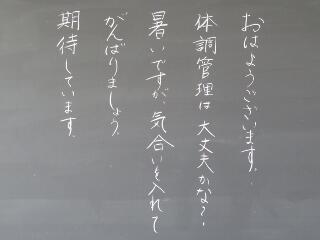 おはようございます。
体調管理は大丈夫かな？
暑いですが、気合いを入れて
がんばりましょう。
期待しています。